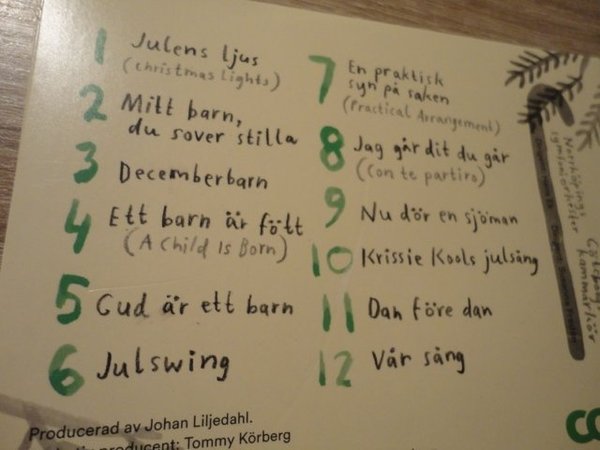 1 Julens ljus
(Christmas Lights)
2 Mitt barn,
du sover stilla
3 Decemberbarn
4 Ett barn är fött
(A Child Is Born)
5 Gud är ett barn
6 Julswing
7 En praktisk
syn på saken
(Practical Arrangement)
8 Jag går dit du går
(Con te partiro)
9 Nu dör en sjöman
10 Krissie Kools julsång
11 Dan före dan
12 Vår sång
Norrköpings
symfoniorkester
Göteborgs
kammarkör
Producerad av Johan Liljedahl.
producent: Tommy Körberg